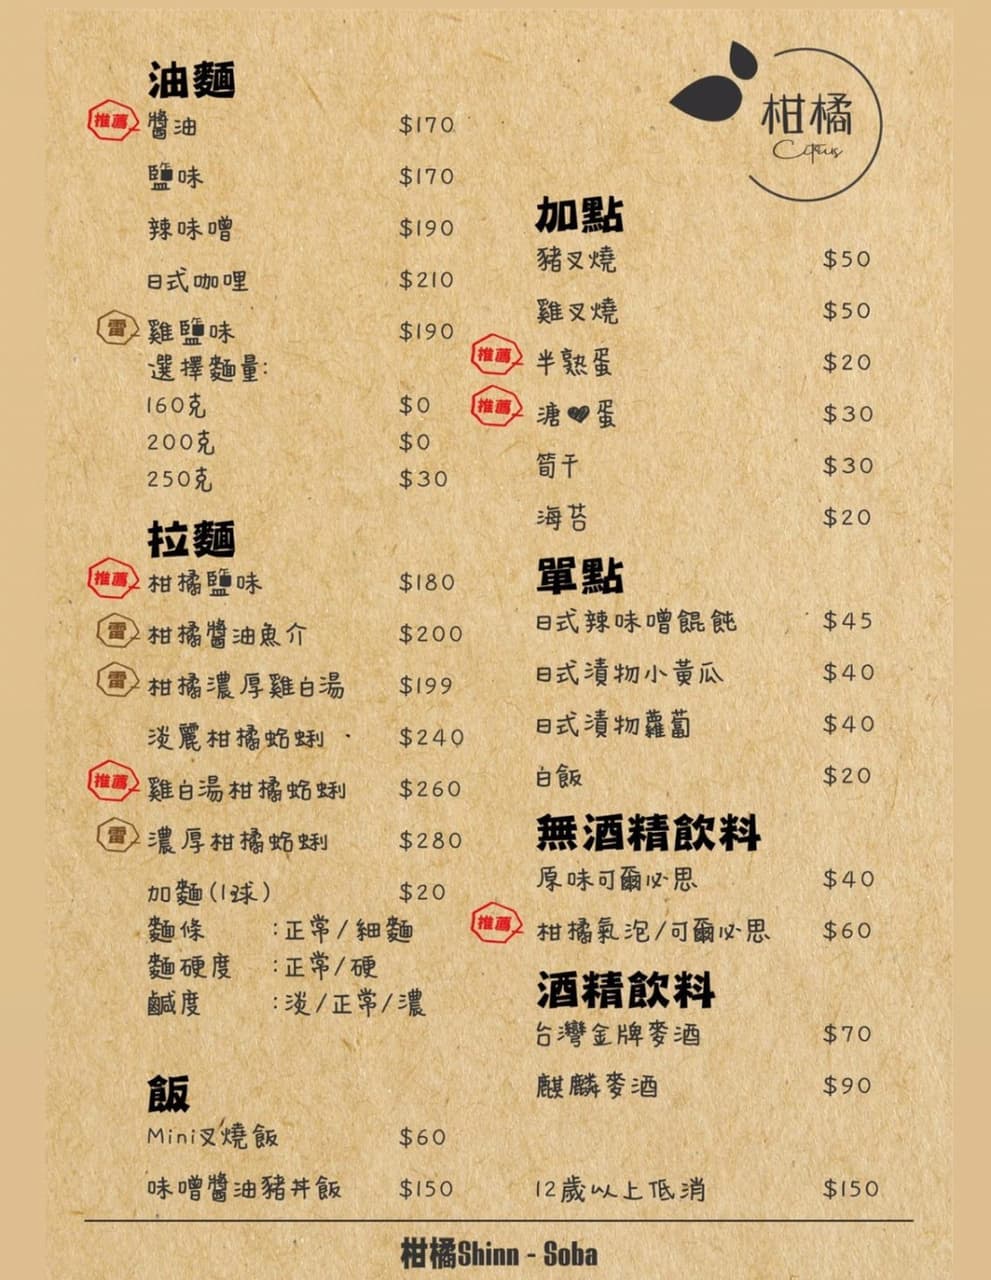 柑橘
Citrus
油麵
推薦 醬油 $170
鹽味 $170
辣味噌 $190
日式咖哩 $210
雷 雞鹽味 $190
選擇麵量:
160克 $0
200克 $0
250克 $30
拉麵
推薦 柑橘鹽味 $180
雷 柑橘醬油魚介 $200
雷 柑橘濃厚雞白湯 $199
淡麗柑橘蛤蜊 $240
推薦 雞白湯柑橘蛤蜊 $260
雷 濃厚柑橘蛤蜊 $280
加麵(1球) $20
麵條 :正常/細麵
麵硬度 :正常/硬
鹹度 :淡/正常/濃
飯
Mini叉燒飯 $60
味噌醬油豬丼飯 $150
加點
豬叉燒 $50
雞叉燒 $50
推薦 半熟蛋 $20
推薦 溏♥蛋 $30
筍干 $30
海苔 $20
單點
日式辣味噌餛飩 $45
日式漬物小黃瓜 $40
日式漬物蘿蔔 $40
白飯 $20
無酒精飲料
原味可爾必思 $40
推薦 柑橘氣泡/可爾必思 $60
酒精飲料
台灣金牌麥酒 $70
麒麟麥酒 $90
12歲以上低消 $150
柑橘Shinn - Soba